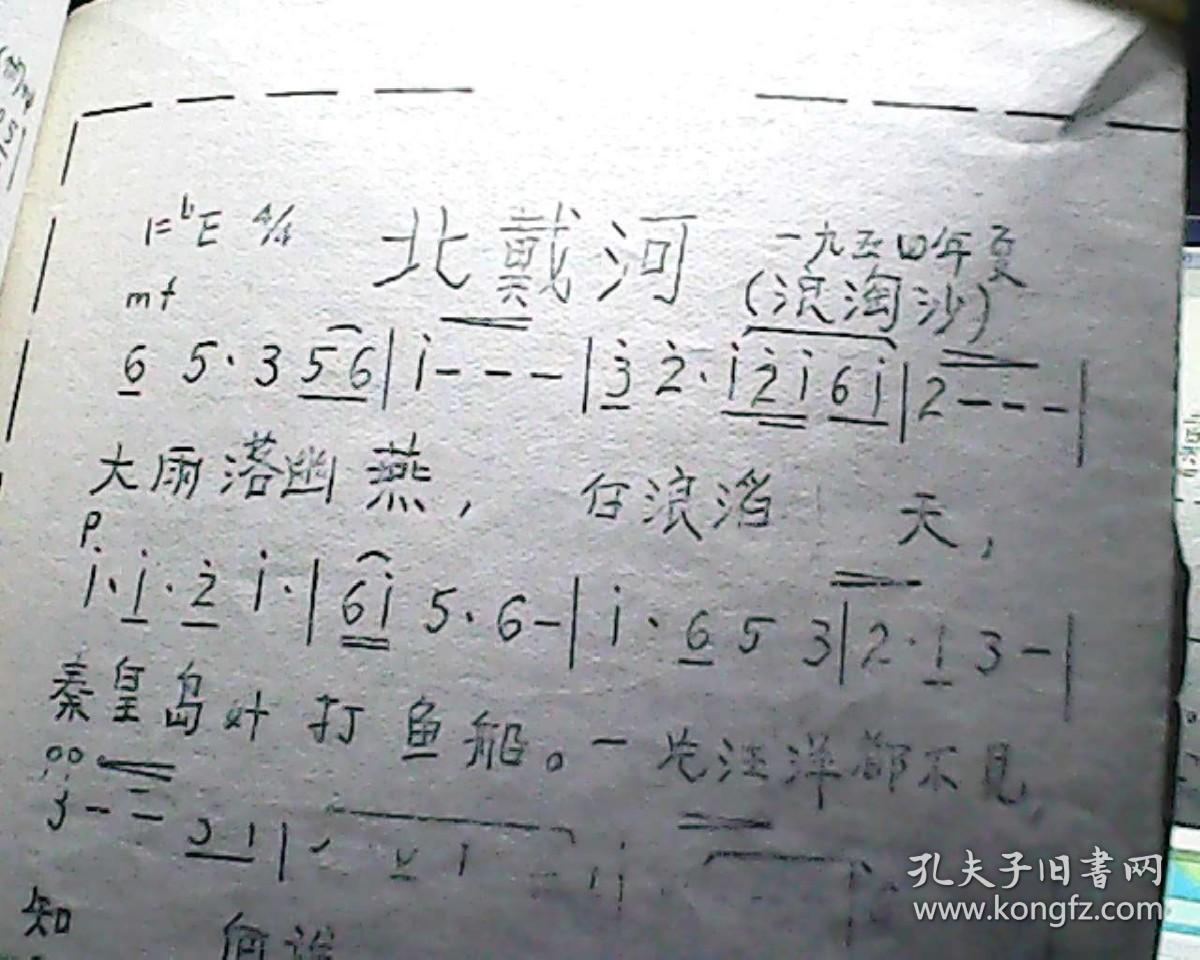 1=♭E 4/4 北戴河 一九五四年夏
mf (浪淘沙)
6 5·3 56|i---|3 2·i2i6i|2---|
大雨落幽燕，白浪滔天，
p
i·i·2 i·|6i 5·6-|i·6 5 3|2·1 3-|
秦皇岛外打鱼船。一片汪洋都不见，
知
孔夫子旧书网
www.kongfz.com